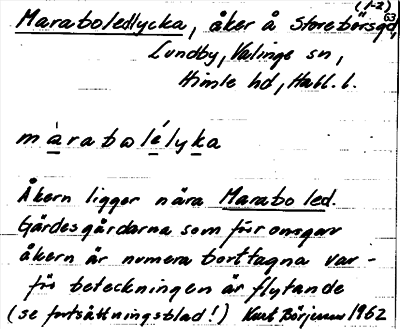 (1-2)
Maraboledlycka, åker å Storebörsgd, 63
Lundby, Valinge sn,
Himle hd, Hall. l.
màrabolélyka
Åkern ligger nära Marabo led.
Gärdesgårdarna som förr omgav
åkern är numera borttagna var-
för beteckningen är flytande
(se fortsättningsblad!) Kurt Börjesson 1962